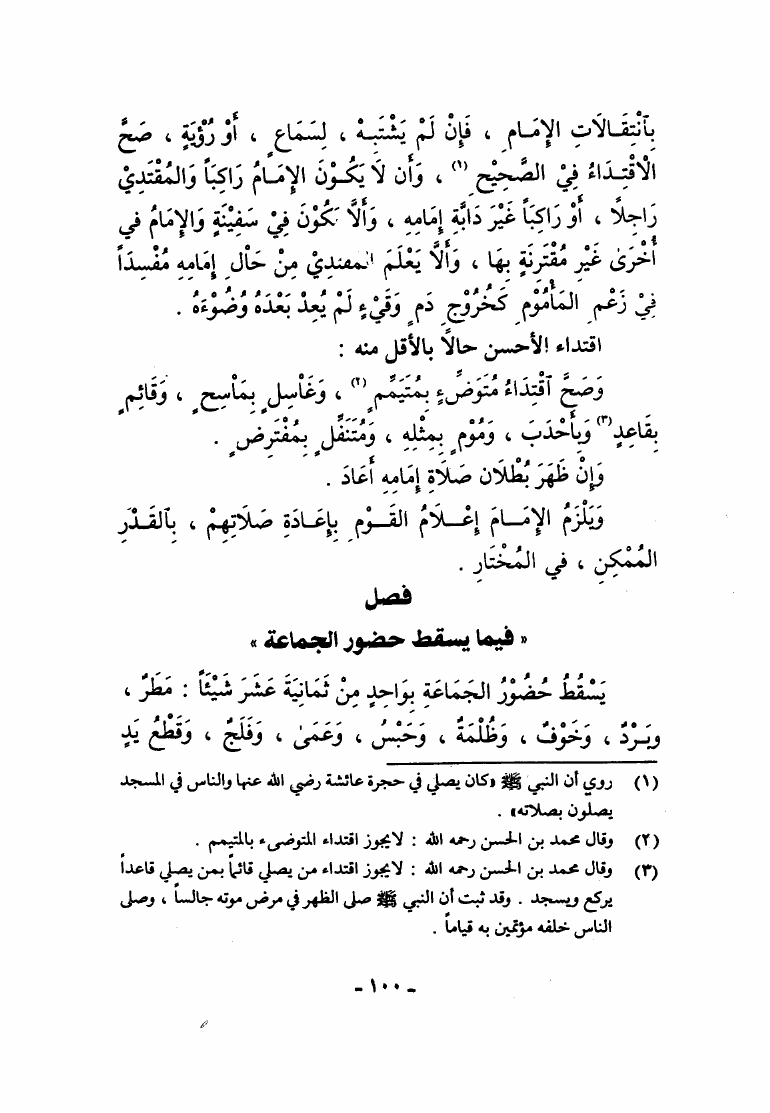 بِٱنْتِقَـالَاتِ الإِمَـامِ ، فَإِنْ لَمْ يَشْتَبِـهْ ، لِسَمَاعٍ ، أَوْ رُؤْيَةٍ ، صَحَّ
الْاقْتِـدَاءُ فِيْ الصَّحِيْحِ (١) ، وَأَن لَا يَكُـوْنَ الإِمَـامُ رَاكِبَاً وَالمُقْتَدِيْ
رَاجِلاً ، أَوْ رَاكِبَاً غَيْرَ دَابَّةِ إِمَامِهِ ، وَأَلَّا يَكُوْنَ فِيْ سَفِيْنَةٍ وَالإِمَامُ في
أُخْرَىٰ غَيْرِ مُقْتَرِنَةٍ بِهَا ، وَأَلَّا يَعْلَمَ المقتديْ مِنْ حَالِ إِمَامِهِ مُفْسِدَاً
فِيْ زَعْمِ المَأْمُوْمِ كَخُرُوْجِ دَمٍ وَقَيْءٍ لَمْ يُعِدْ بَعْدَهُ وُضُوْءَهُ .
اقتداء الأحسن حالاً بالأقل منه :
وَصَحَّ ٱقْتِدَاءُ مُتَوَضِّءٍ بِمُتَيَمِّمٍ (٢) ، وَغَاسِلٍ بِمَاسِحٍ ، وَقَائِمٍ
بِقَاعِدٍ (٣) وَبِأَحْدَبَ ، وَمُوْمٍ بِمِثْلِهِ ، وَمُتَنَفِّلٍ بِمُفْتَرِضٍ .
وَإِنْ ظَهَرَ بُطْلَان صَلَاةِ إِمَامِهِ أَعَادَ .
وَيَلْزَمُ الإِمَـامَ إِعْـلَامُ القَـوْمِ بِإِعَـادَةِ صَلَاتِهِمْ ، بِٱلقَـدْرِ
المُمْكِنِ ، في المُخْتَارِ .
فصل
« فيما يسقط حضور الجماعة »
يَسْقُطُ حُضُوْرُ الجَمَاعَةِ بِوَاحِدٍ مِنْ ثَمَانِيَةَ عَشَرَ شَيْئَاً : مَطَرٌ ،
وبَـرْدٌ ، وَخَوْفٌ ، وَظُلْمَةٌ ، وَحَبْسٌ ، وَعَمَىٰ ، وَفَلَجٌ ، وَقَطْعُ يَدٍ
(١) روي أن النبي ﷺ «كان يصلي في حجرة عائشة رضي الله عنها والناس في المسجد
يصلون بصلاته» .
(٢) وقال محمد بن الحسن رحمه الله : لا يجوز اقتداء المتوضىء بالمتيمم .
(٣) وقال محمد بن الحسن رحمه الله : لا يجوز اقتداء من يصلي قائماً بمن يصلي قاعداً
يركع ويسجد . وقد ثبت أن النبي ﷺ صلى الظهر في مرض موته جالساً ، وصلى
الناس خلفه مؤتمين به قياماً .
- ١٠٠ -